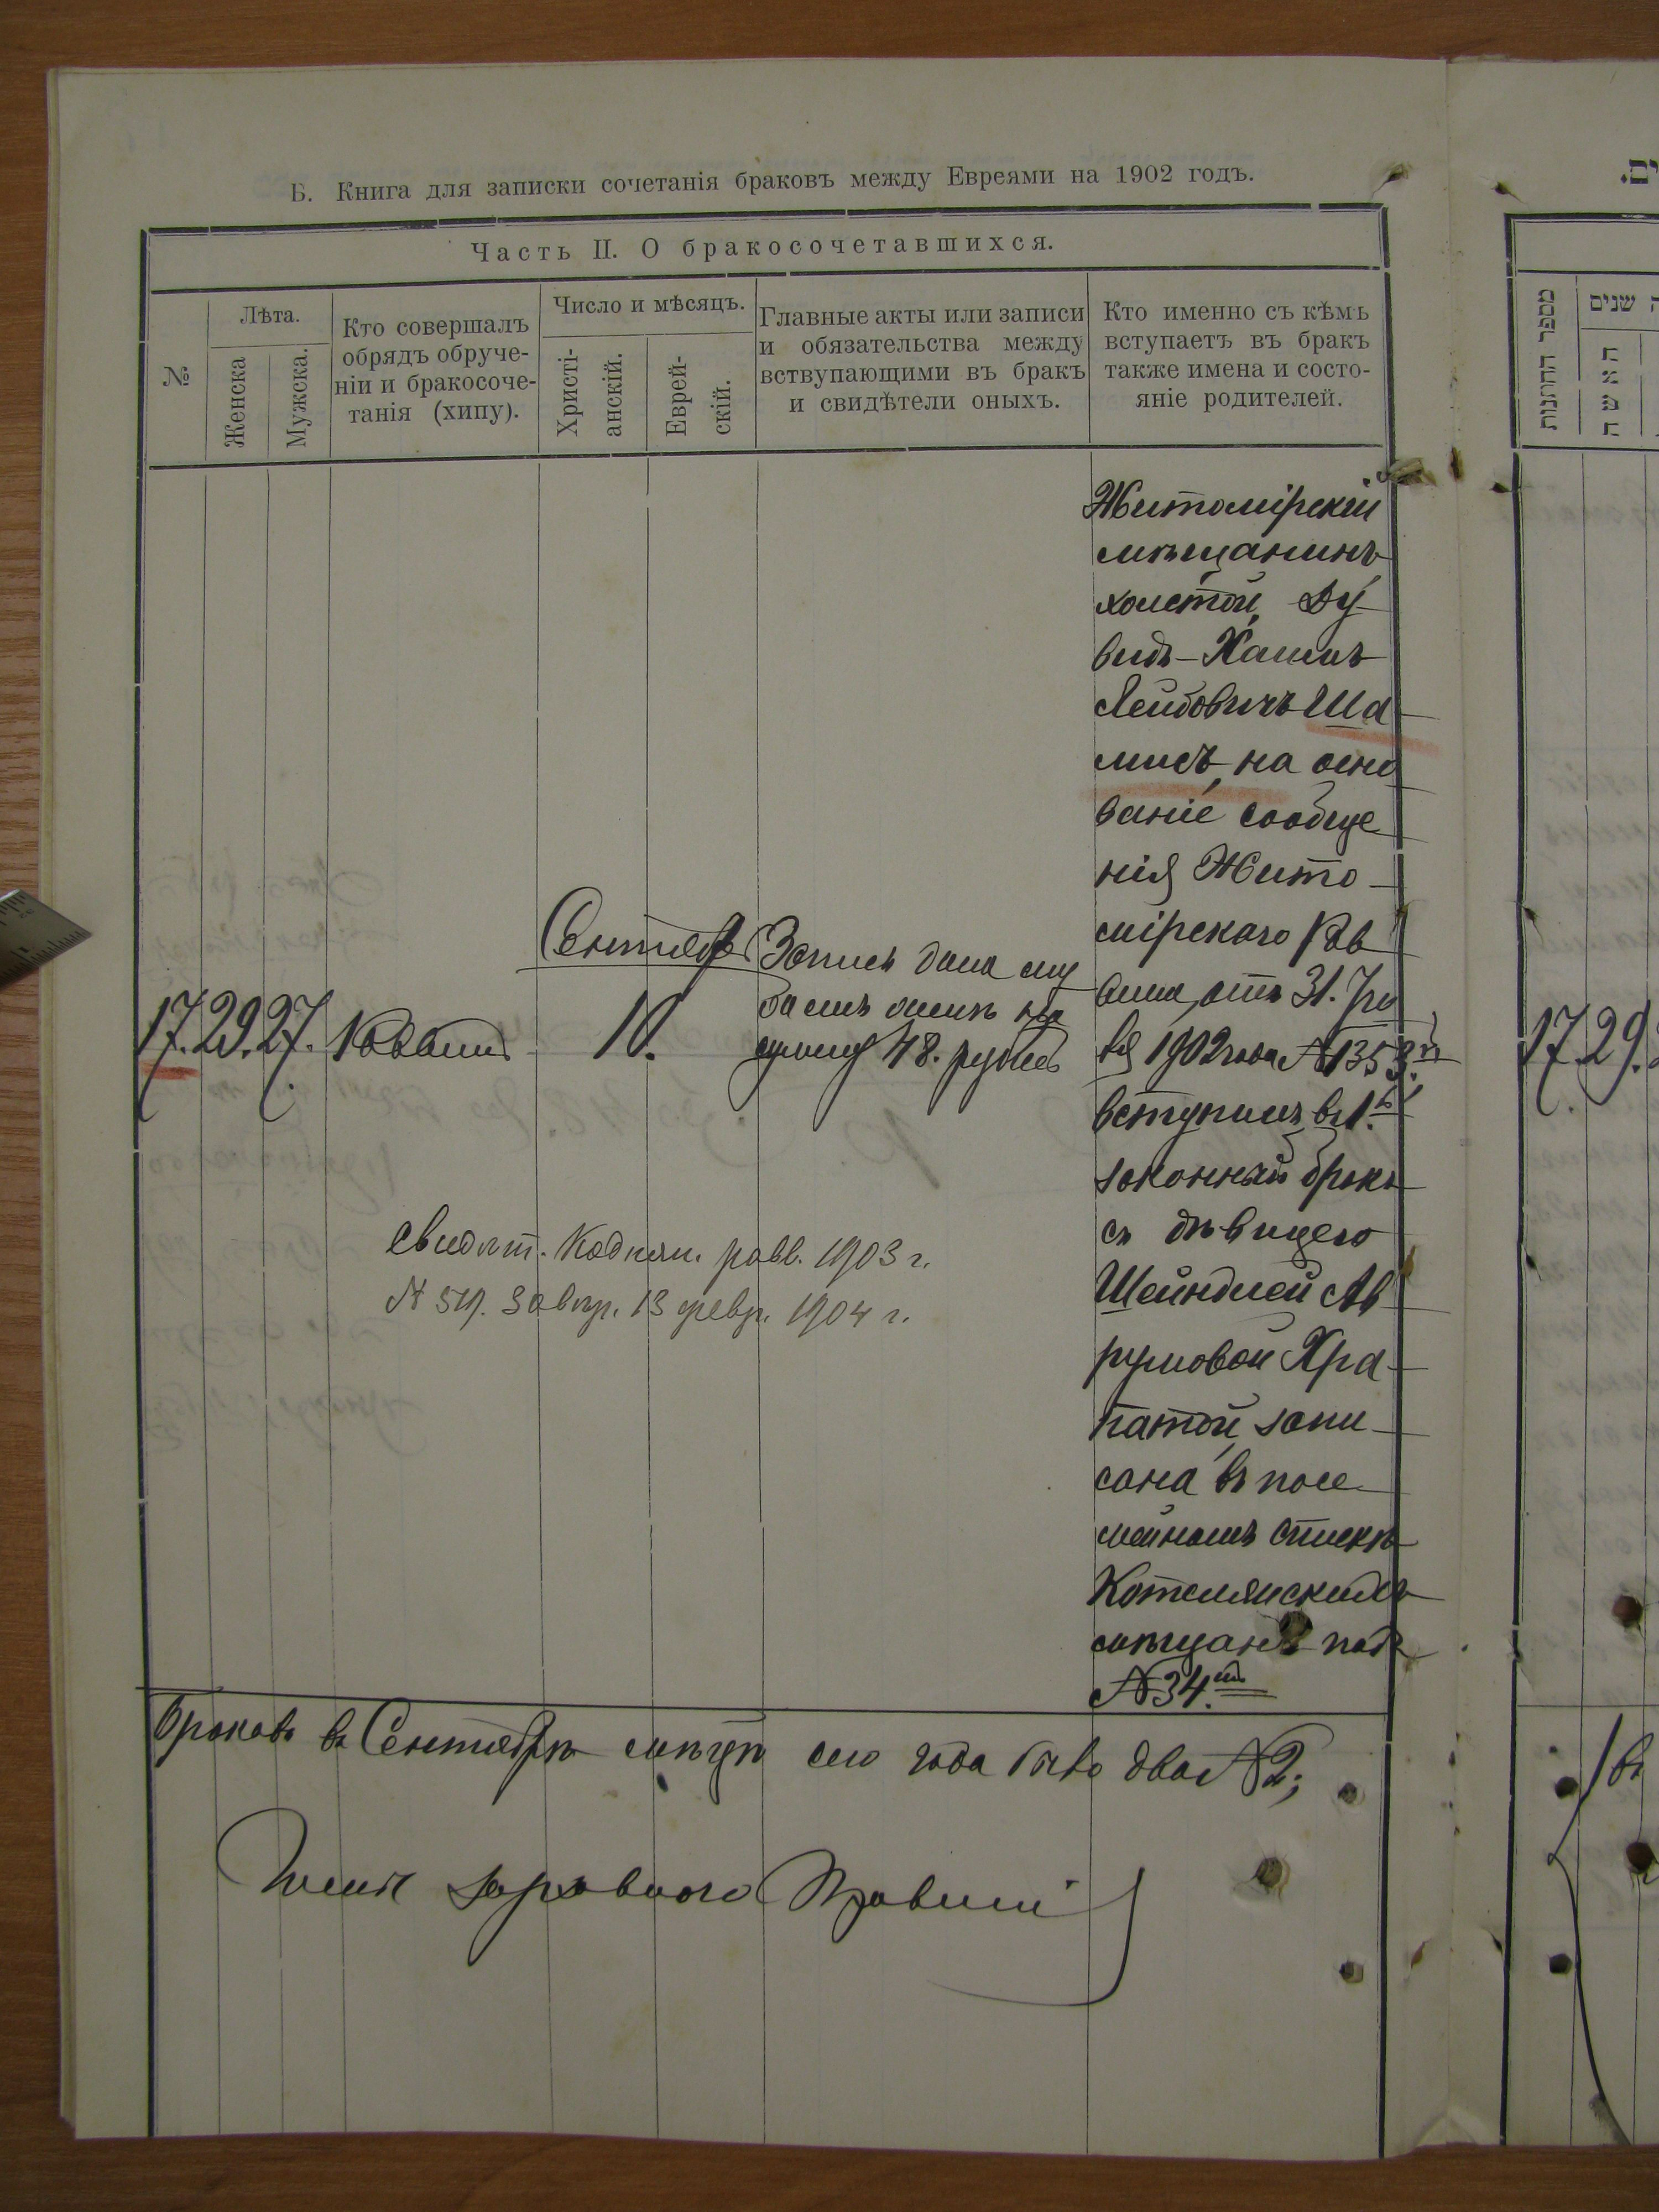 Б. Книга для записки сочетанія браковъ между Евреями на 1902 годъ.
Часть II. О бракосочетавшихся.
№
Лѣта.
Женска
Мужска.
Кто совершалъ
обрядъ обруче-
ніи и бракосоче-
танія (хипу).
Число и мѣсяцъ.
Христі-
анскій.
Еврей-
скій.
Главные акты или записи
и обязательства между
вствупающими въ бракъ
и свидѣтели оныхъ.
Кто именно съ кѣмъ
вступаетъ въ бракъ
также имена и состо-
яніе родителей.
17. 29. 27. Раввинъ
Сентября
10.
Запись дана
на
сумму 48. рублей
Житомірскій
мѣщанинъ
холстой, Ду-
видъ-Хаимъ
Лейбовичъ Ша-
мисъ, на осно
ваніе сообще
нія Жито-
мірскаго Рав
вина, отъ 31.
1902 года №1353.
вступилъ въ 1.й
законный бракъ
съ дѣвицею
Шейндлей Ав
румовой Хра-
патой, запи-
сана въ посе-
мейномъ спискѣ
Котелянскихъ
мѣщанъ подъ
№34.мъ
Свидѣт. Кодням. равв. 1903 г.
№ 519. Завѣр. 13 февр. 1904 г.
Браковъ въ Сентябрѣ мѣсяцѣ сего года было два №2;
Раввинъ
מספר החתנות
שנים
האשה
ים.
17. 29.